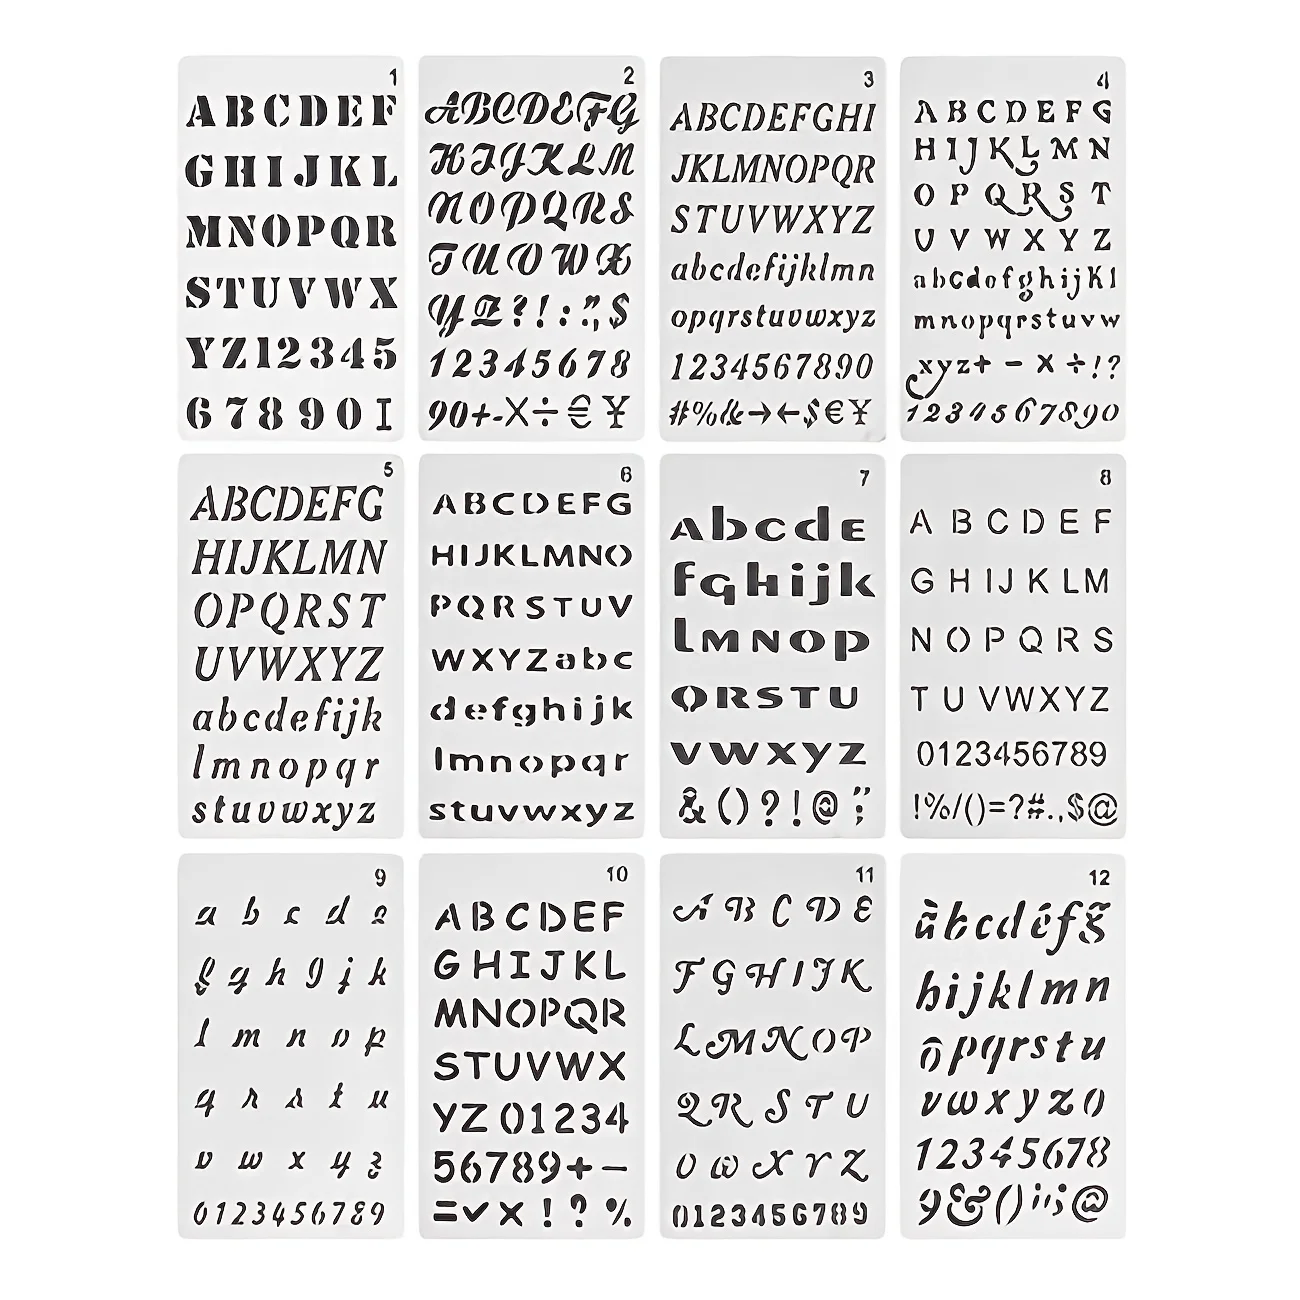 1
ABCDEF
GHIJKL
MNOPQR
STUVWX
YZ12345
67890I
2
ABCDEFG
HIJKLM
NOPQRS
TUVWX
YZ?!:",$
12345678
90+-X÷€¥
3
ABCDEFGHI
JKLMNOPQR
STUVWXYZ
abcdefijklmn
opqrstuvwxyz
1234567890
#%&→←$€¥
4
ABCDEFG
HIJKLMN
OPQRST
UVWXYZ
abcdefghijkl
mnopqrstuvw
xyz+-x÷!?
1234567890
5
ABCDEFG
HIJKLMN
OPQRST
UVWXYZ
abcdefijk
lmnopqr
stuvwxyz
6
ABCDEFG
HIJKLMNO
PQRSTUV
WXYZabc
defghijk
lmnopqr
stuvwxyz
7
AbcdE
fghijk
lMNOp
QRSTU
vwxyz
&()?!@";
8
ABCDEF
GHIJKLM
NOPQRS
TUVWXYZ
0123456789
!%/()=?#.,$@
9
abcde
fghIjk
lmnop
qrstu
vwxyz
0123456789
10
ABCDEF
GHIJKL
MNOPQR
STUVWX
YZ01234
56789+-
=✓×!?%
11
ABCDE
FGHIJK
LMNOP
QRSTU
VWXYZ
0123456789
12
abcdéfg
hijklmn
opqrstu
vwxyz0
12345678
9&()!";@